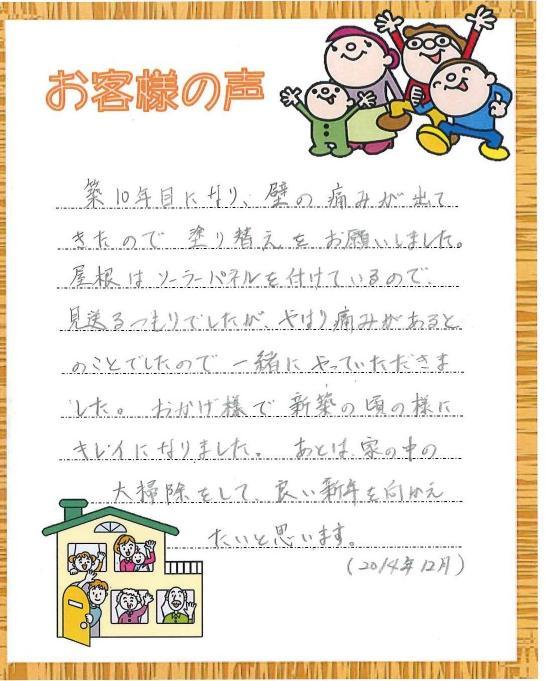 お客様の声
築10年目になり、壁の痛みが出て
きたので 塗り替えを お願いしました。
屋根は ソーラーパネルを付けているので、
見送るつもりでしたが、やはり痛みがあると
のことでしたので 一緒に やっていただきま
した。 おかげ様で 新築の頃の様に
キレイになりました。 あとは、家の中の
大掃除をして、良い新年を向かえ
たいと思います。
(2014年12月)